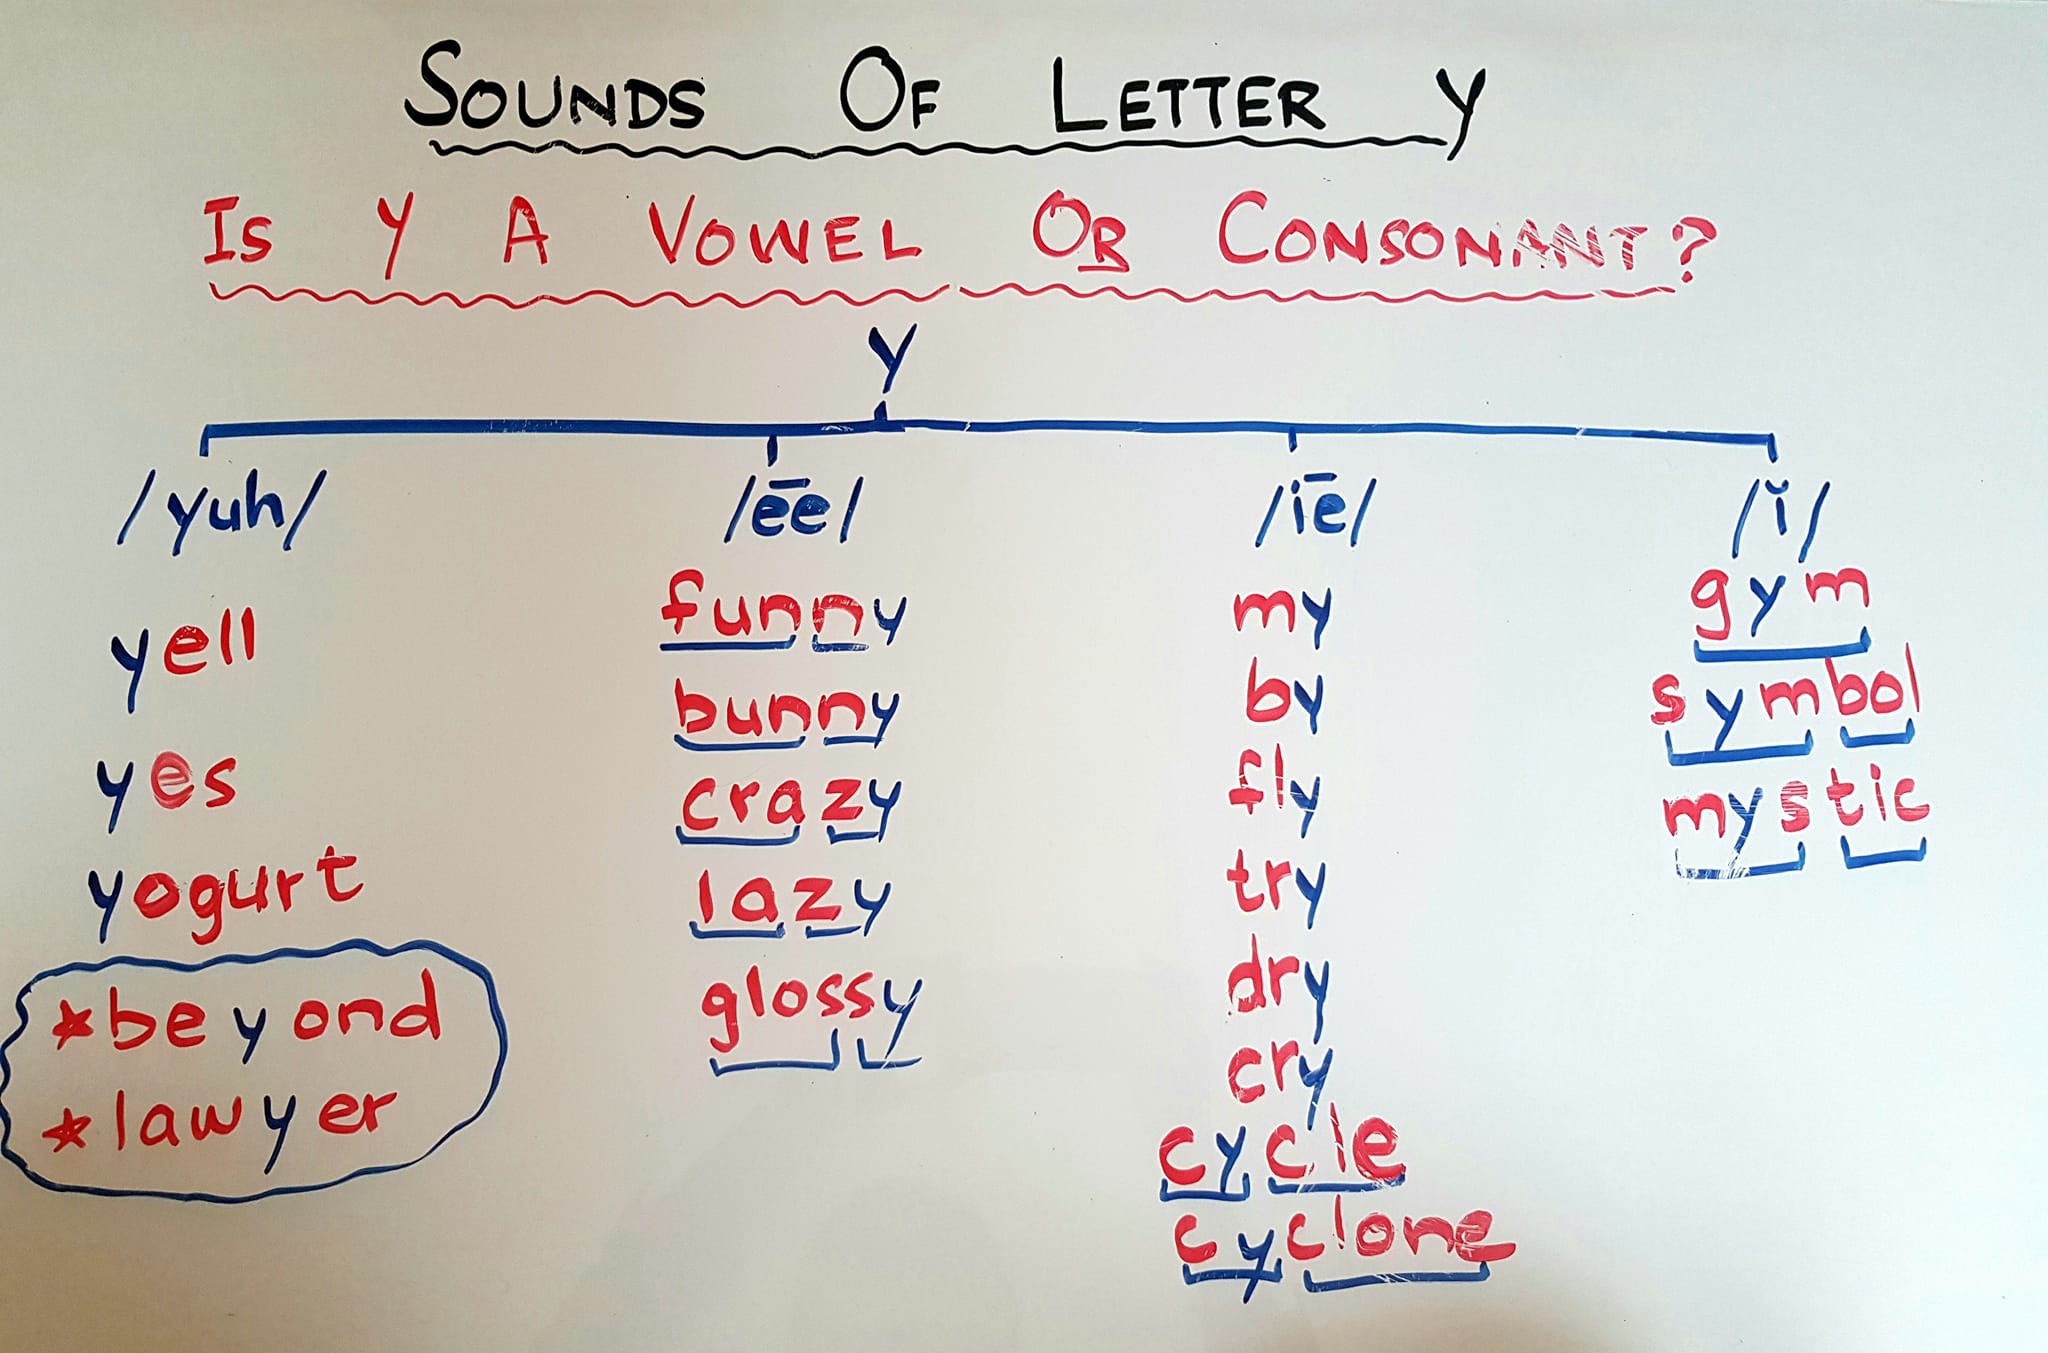 SOUNDS OF LETTER Y
IS Y A VOWEL OR CONSONANT?
y
/yuh/
yell
yes
yogurt
*beyond
*lawyer
/ēe/
funny
bunny
crazy
lazy
glossy
/īe/
my
by
fly
try
dry
cry
cycle
cyclone
/ĭ/
gym
symbol
mystic